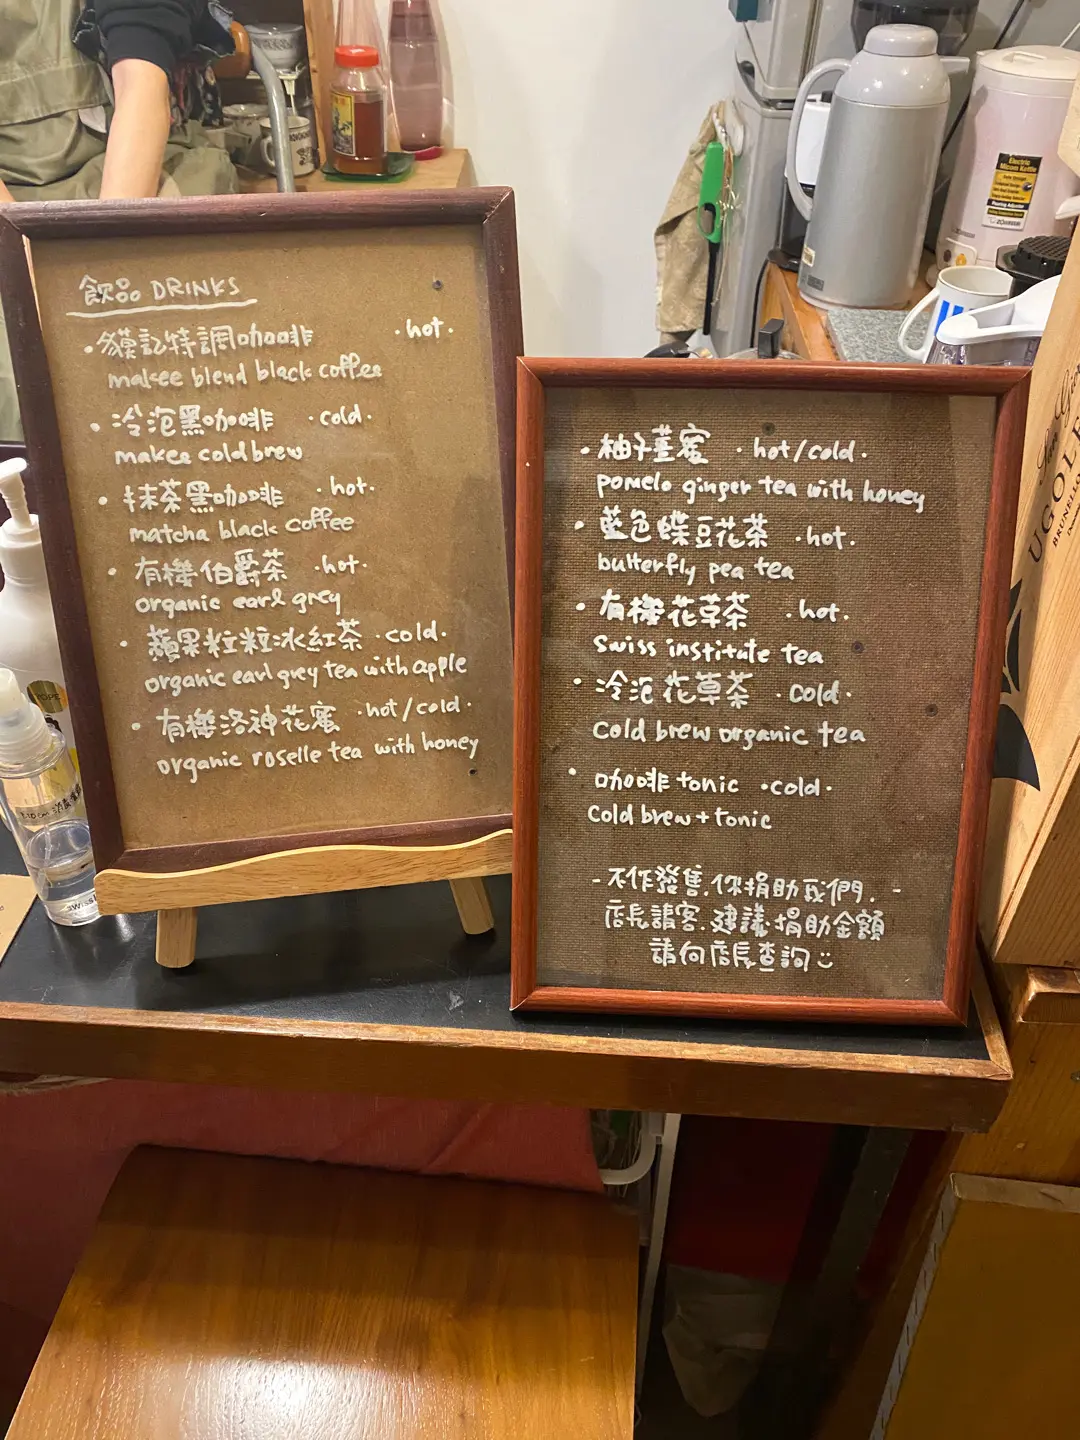 飲品 DRINKS
·貘記特調咖啡 ·hot·
makee blend black coffee
·冷泡黑咖啡 ·cold·
makee cold brew
·抹茶黑咖啡 ·hot·
matcha black coffee
·有機伯爵茶 ·hot·
organic earl grey
·蘋果粒粒冰紅茶 ·cold·
organic earl grey tea with apple
·有機洛神花蜜 ·hot/cold·
organic roselle tea with honey
·柚子薑蜜 ·hot/cold·
pomelo ginger tea with honey
·藍色蝶豆花茶 ·hot·
butterfly pea tea
·有機花草茶 ·hot·
swiss institute tea
·冷泡花草茶 ·cold·
cold brew organic tea
·咖啡tonic ·cold·
Cold brew + tonic
-不作發售.你捐助我們.-
店長請客.建議捐助金額
請向店長查詢
Electric
Micom Kettle
UGOL
BRUNELLO